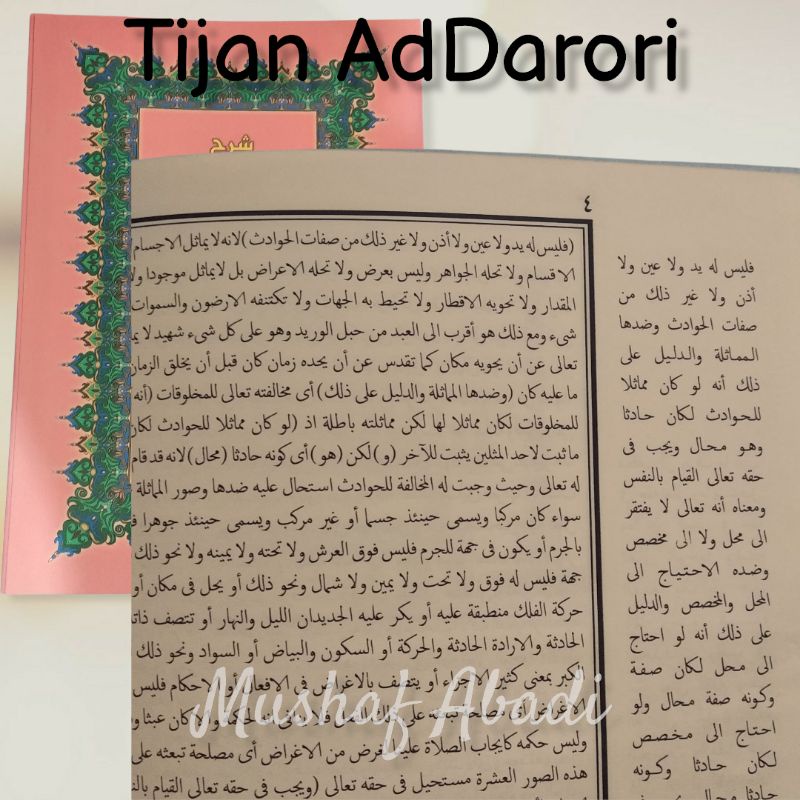 Tijan AdDarori
شرح
٤
(فليس له يد ولا عين ولا أذن ولا غير ذلك من صفات الحوادث) لانه لا يماثل الاجسام
الاقسام ولا تحله الجواهر وليس بعرض ولا تحله الاعراض بل لا يماثل موجودا ولا
المقدار ولا تحويه الاقطار ولا تحيط به الجهات ولا تكتنفه الارضون والسموات
شىء ومع ذلك هو أقرب الى العبد من حبل الوريد وهو على كل شىء شهيد
تعالى عن أن يحويه مكان كما تقدس عن أن يحده زمان كان قبل أن يخلق الزمان
ما عليه كان (وضدها المماثلة والدليل على ذلك) أى مخالفته تعالى للمخلوقات (أنه
للمخلوقات لكان مماثلا لها لكن مماثلته باطلة اذ (لو كان مماثلا للحوادث لكان
ما ثبت لاحد المثلين يثبت للآخر (و) لكن (هو) أى كونه حادثا (محال) لانه قد قام
له تعالى وحيث وجبت له المخالفة للحوادث استحال عليه ضدها وصور المماثلة
سواء كان مركبا ويسمى حينئذ جسما أو غير مركب ويسمى حينئذ جوهرا
بالجرم أو يكون فى جهة للجرم فليس فوق العرش ولا تحته ولا يمينه ولا نحو ذلك
جهة فليس له فوق ولا تحت ولا يمين ولا شمال ونحو ذلك أو يحل فى مكان أو
حركة الفلك منطبقة عليه أو يكر عليه الجديدان الليل والنهار أو تتصف ذاته
الحادثة والارادة الحادثة والحركة أو السكون والبياض أو السواد ونحو ذلك
الكبر بمعنى كثير الاجزاء أو يتصف بالاغراض فى الافعال أو الاحكام فليس
الاغراض أى مصلحة تبعثه على ذلك
وليس حكمه كايجاب الصلاة علينا لغرض من الاغراض أى مصلحة تبعثه على
هذه الصور العشرة مستحيل فى حقه تعالى (ويجب فى حقه تعالى القيام
فليس له يد ولا عين ولا
أذن ولا غير ذلك من
صفات الحوادث وضدها
المماثلة والدليل على
ذلك أنه لو كان مماثلا
للحوادث لكان حادثا
وهو محال ويجب فى
حقه تعالى القيام بالنفس
ومعناه أنه تعالى لا يفتقر
الى محل ولا الى مخصص
وضده الاحتياج الى
المحل والمخصص والدليل
على ذلك أنه لو احتاج
الى محل لكان صفة
وكونه صفة محال ولو
احتاج الى مخصص
لكان حادثا وكونه
حادثا محال
Mushaf Abadi